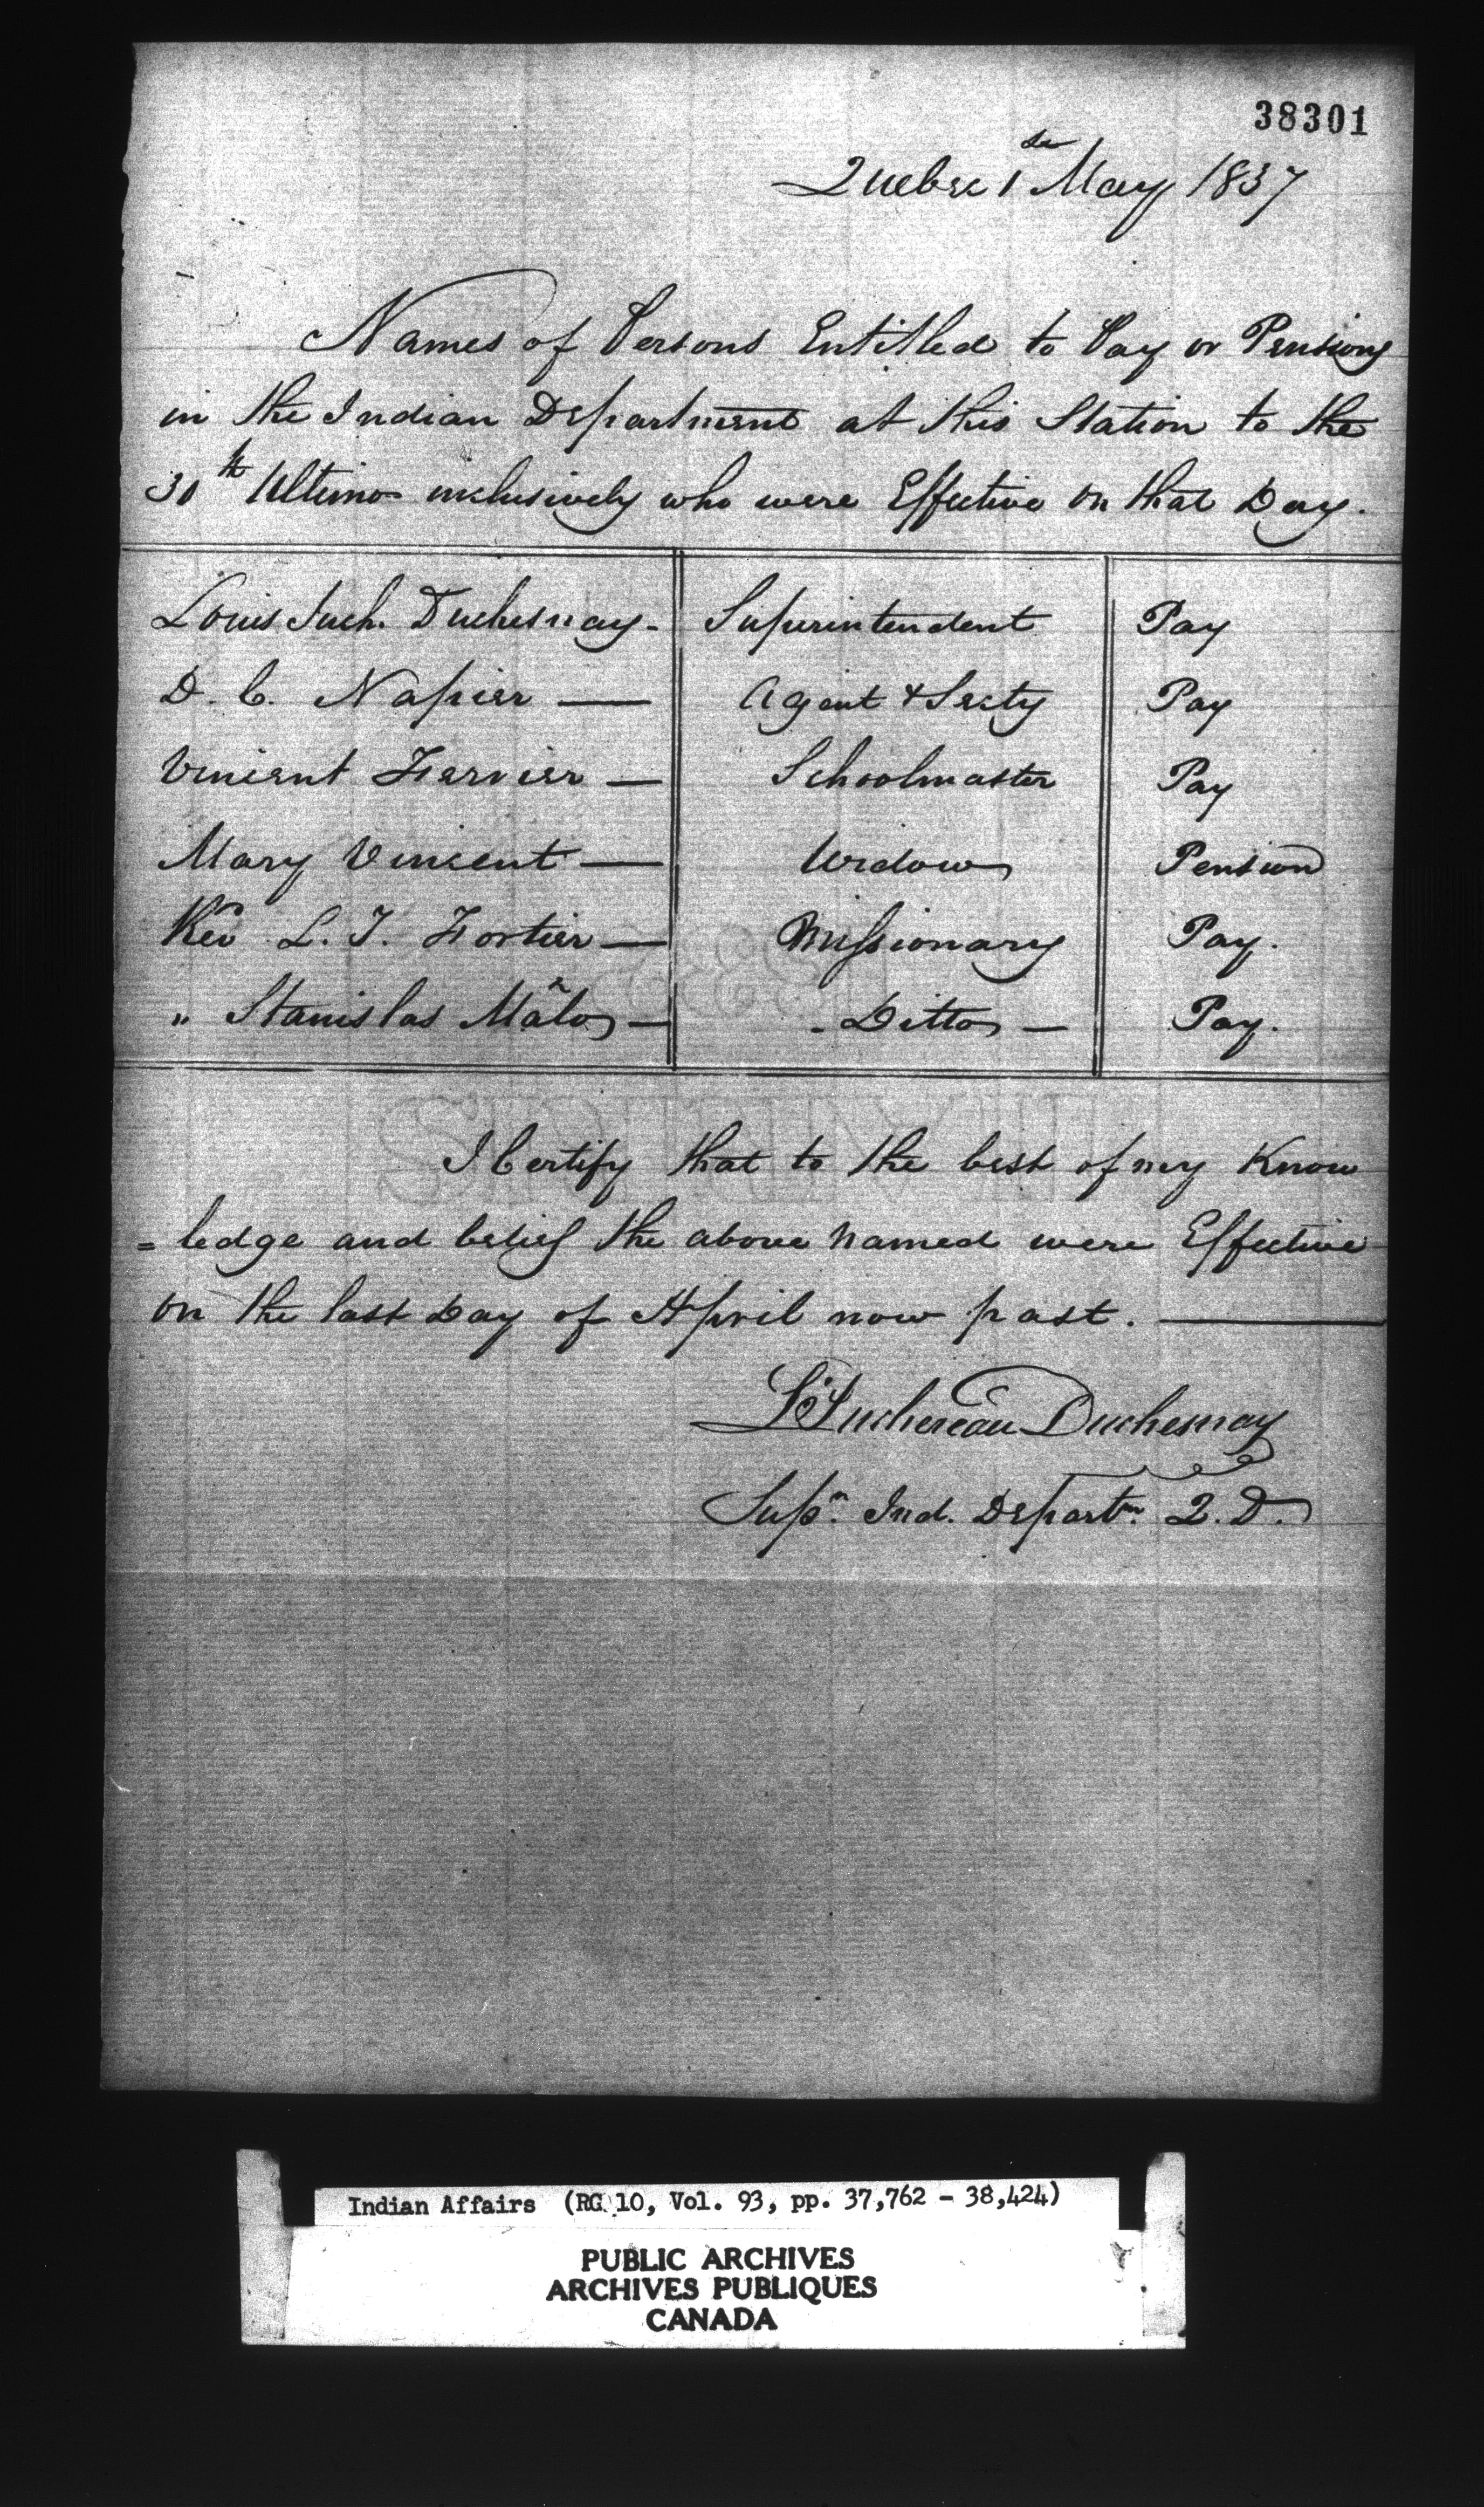 38301
Quebec 1st May 1837
Names of Persons Entitled to Pay or Pensions
in the Indian Department at this Station to the
30th Ultimo inclusively who were Effective on that Day.
Louis Juch. Duchesnay - Superintendent Pay
D. C. Napier — Agent & Secty Pay
Vincent Ferrier — Schoolmaster Pay
Mary Vincent — Widow Pension
Revd L. T. Fortier — Missionary Pay.
" Stanislas Mâlo — - Ditto — Pay.
I Certify that to the best of my Know
= ledge and belief the above named were Effective
on the last Day of April now past. —
L Juchereau Duchesnay
Supr. Ind. Departm. Q. D.
Indian Affairs (RG 10, Vol. 93, pp. 37,762 - 38,424)
PUBLIC ARCHIVES
ARCHIVES PUBLIQUES
CANADA